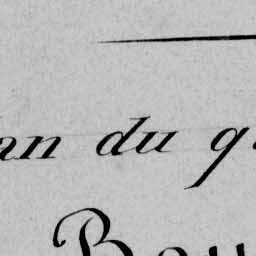 an du q
Bou